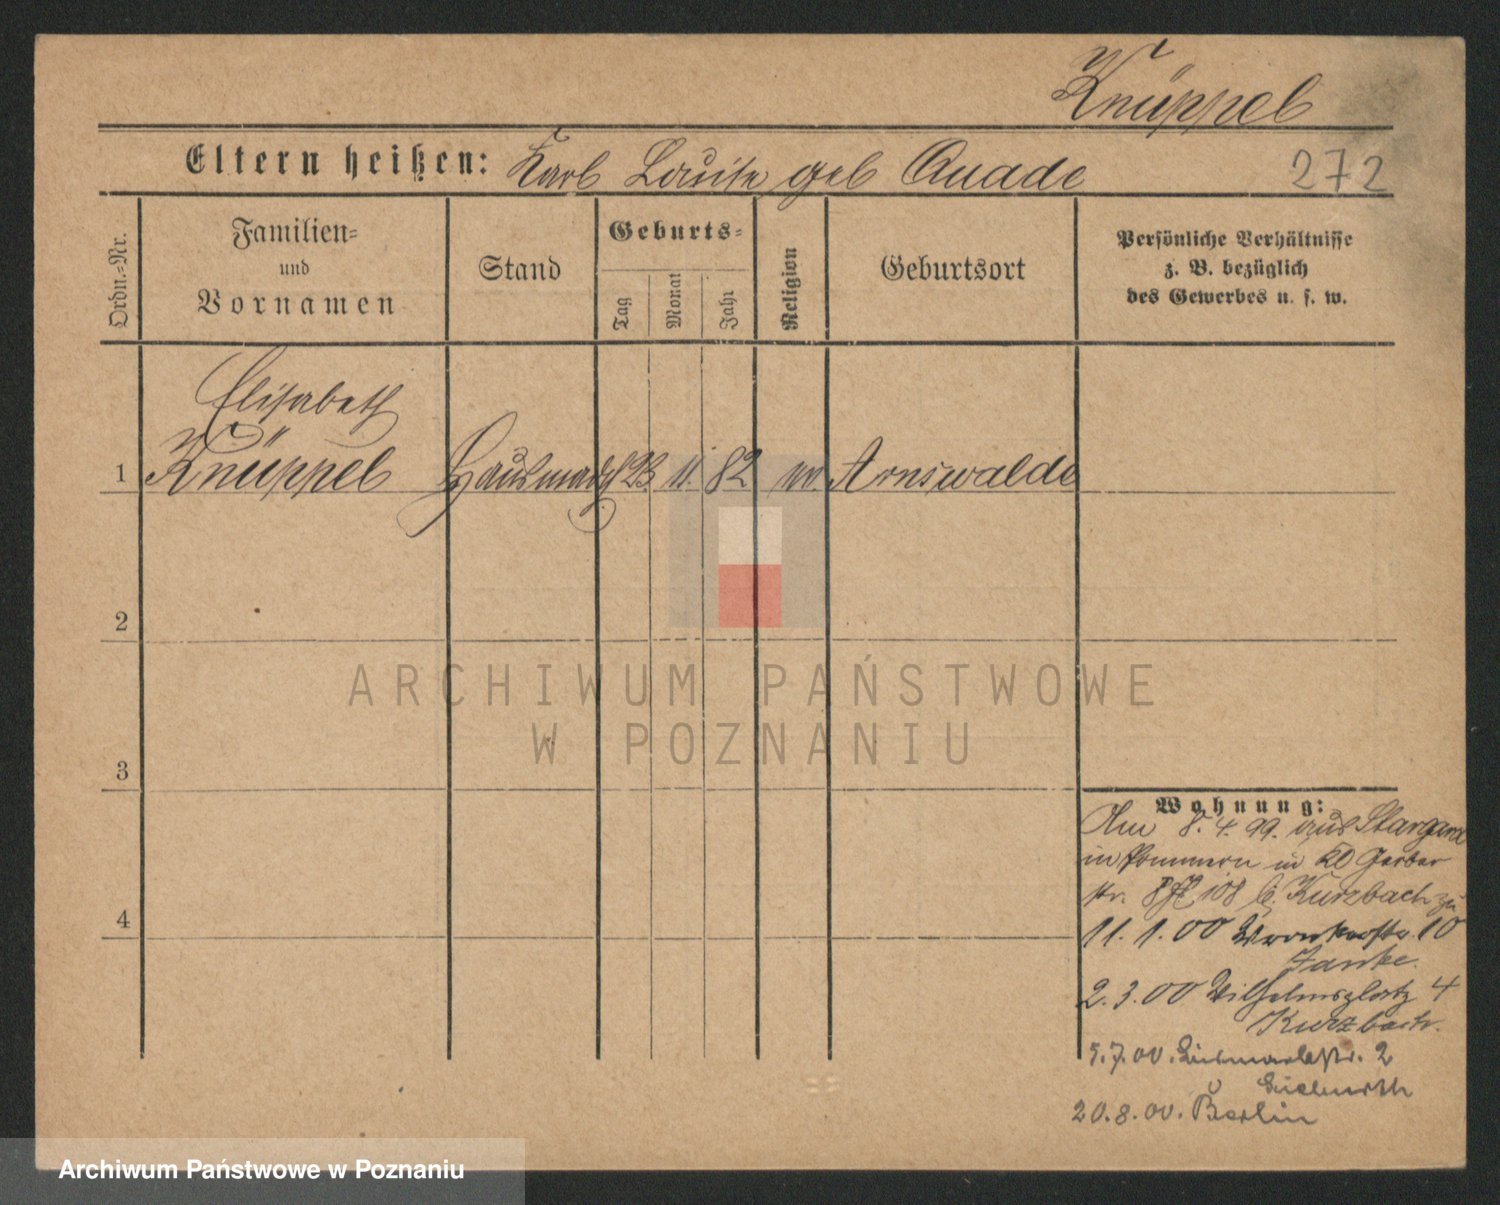 Knüppel
Eltern heißen: Karl Louise geb Quade
272
Ordn.=Nr.
Familien=
und
Vornamen
Stand
Geburts=
Tag
Monat
Jahr
Religion
Geburtsort
Persönliche Verhältnisse
z. B. bezüglich
des Gewerbes u. s. w.
Elisabeth
1 Knüppel Hausmädch 23 11. 82 Arnswalde
2
ARCHIWUM PAŃSTWOWE
W POZNANIU
3
Wohnung:
Am 8. 4. 99. aus Stargard
in Pommern in Gerber
str. 8 108 b. Kurzbach zu
11. 1. 00 Wronkerstr. 10
Janke.
2. 3. 00 Wilhelmsplatz 4
Kurzbach.
4
5. 7. 00. Bismarckstr. 2
20. 8. 00. Berlin
Archiwum Państwowe w Poznaniu